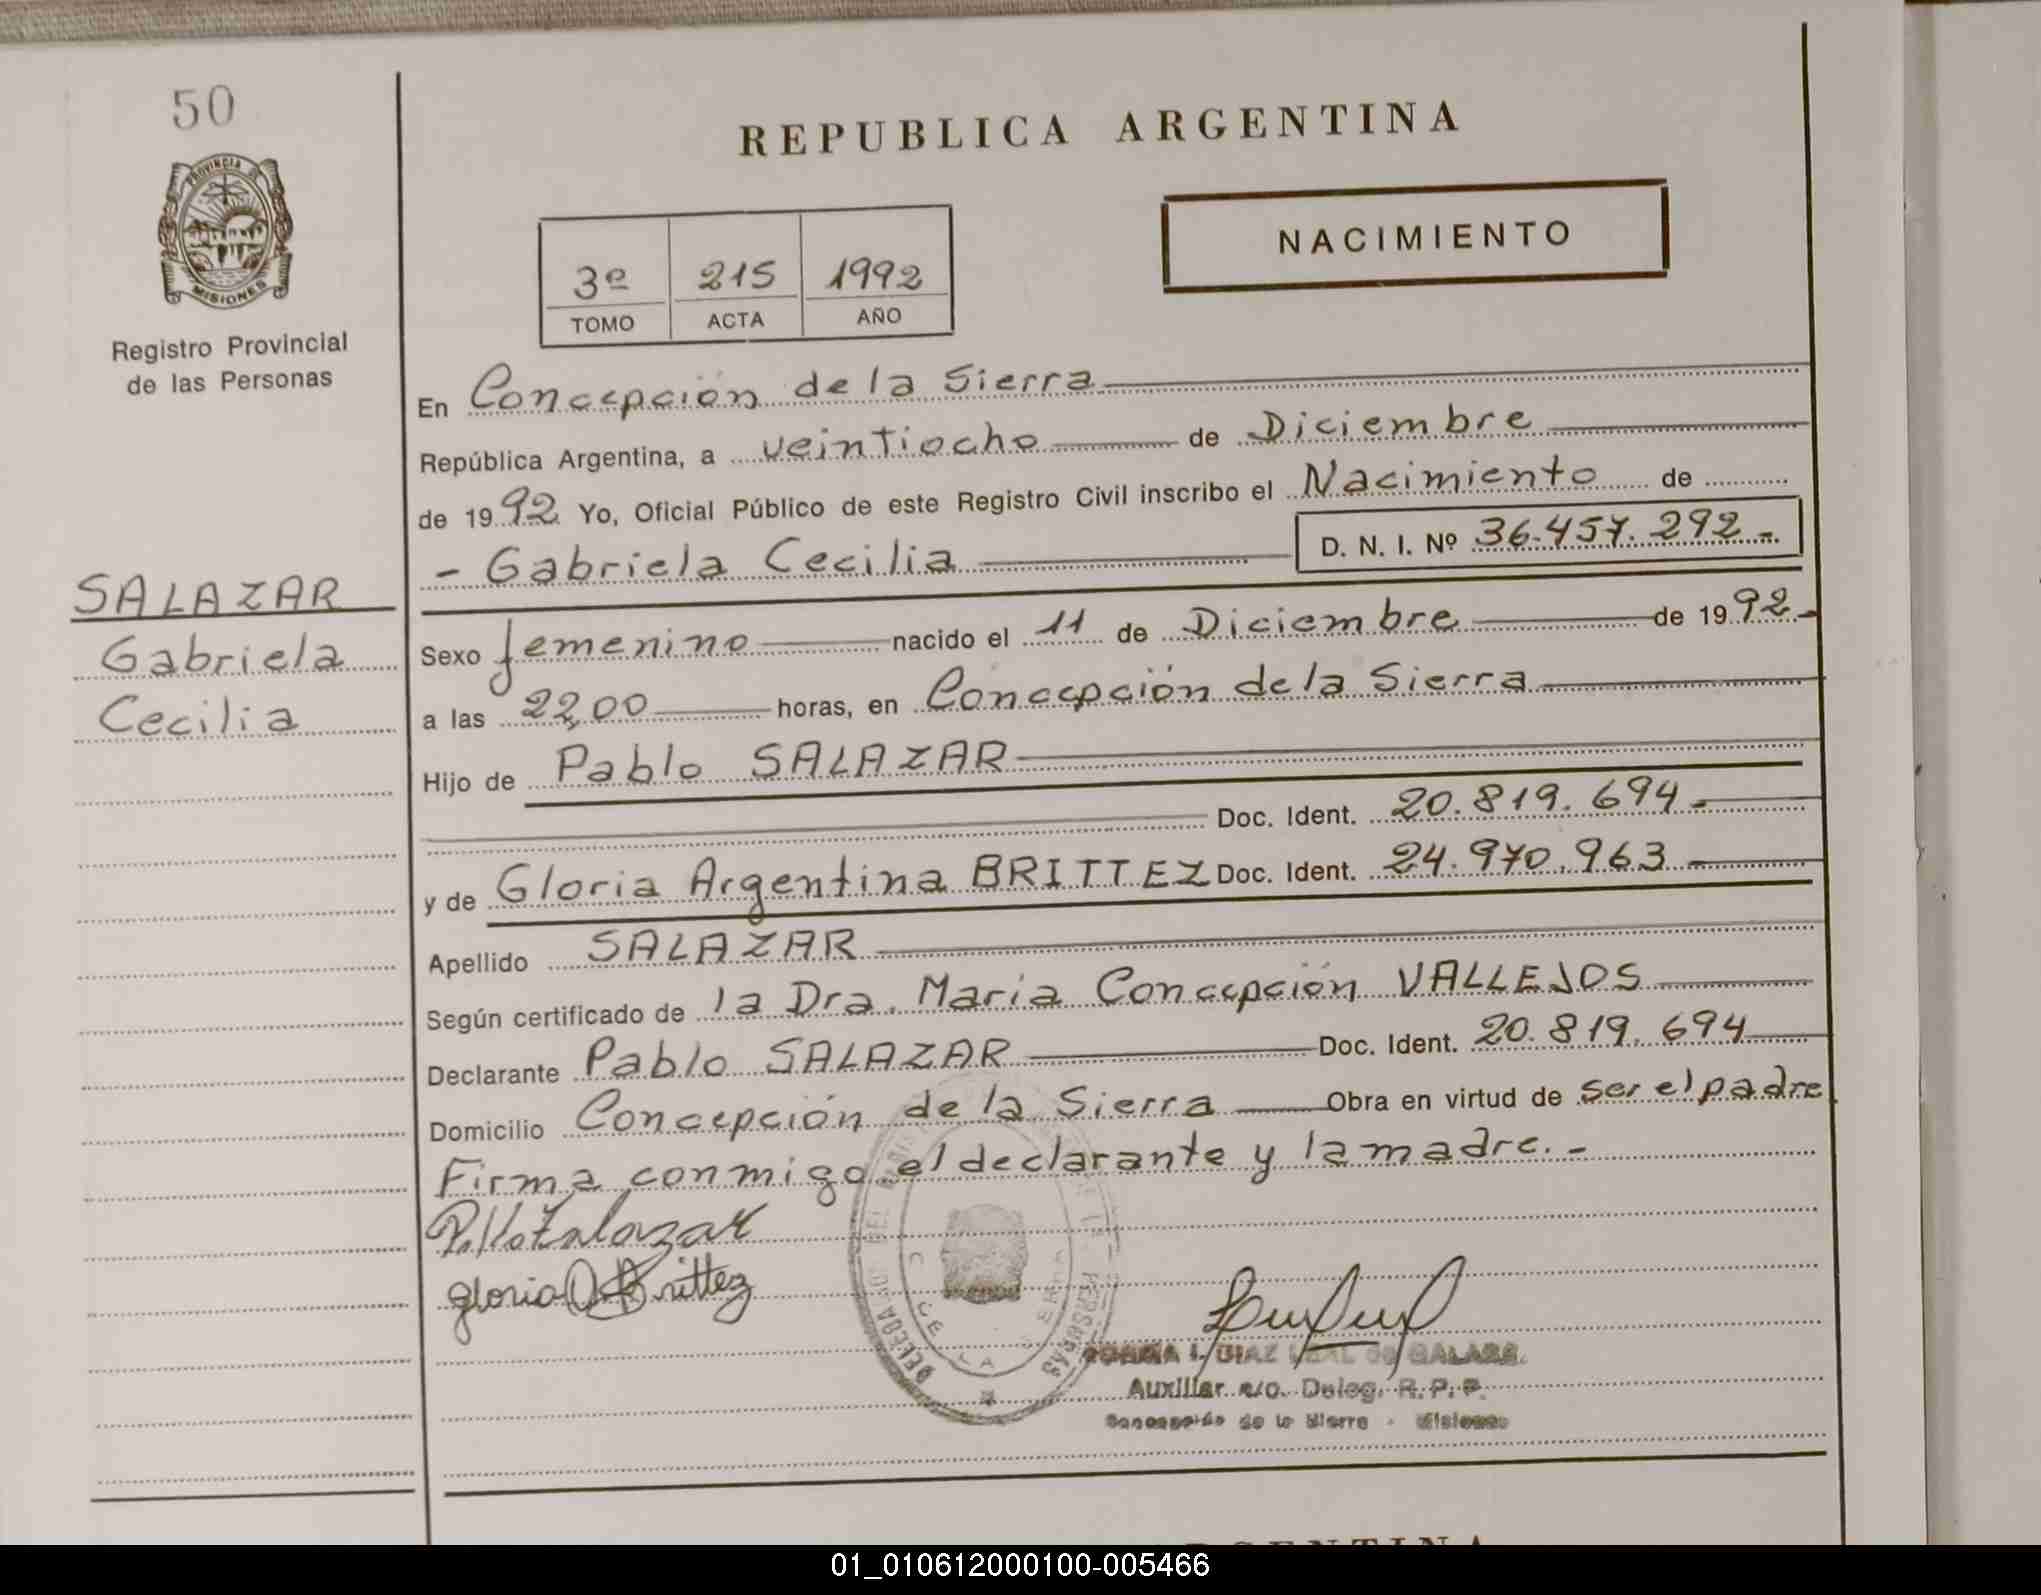 50
PROVINCIA DE
MISIONES
Registro Provincial
de las Personas
SALAZAR
Gabriela
Cecilia
REPUBLICA ARGENTINA
NACIMIENTO
3º 215 1992
TOMO ACTA AÑO
En Concepción de la Sierra
República Argentina, a veintiocho de Diciembre
de 1992 Yo, Oficial Público de este Registro Civil inscribo el Nacimiento de
- Gabriela Cecilia D. N. I. Nº 36.457.292.-
Sexo femenino nacido el 11 de Diciembre de 1992.-
a las 22,00 horas, en Concepción de la Sierra
Hijo de Pablo SALAZAR
Doc. Ident. 20.819.694.-
y de Gloria Argentina BRITTEZ Doc. Ident. 24.970.963.-
Apellido SALAZAR
Según certificado de la Dra. Maria Concepción VALLEJOS
Declarante Pablo SALAZAR Doc. Ident. 20.819.694
Domicilio Concepción de la Sierra Obra en virtud de ser el padre
Firma conmigo el declarante y la madre.-
Pablo Salazar
gloria A Brittez
DIAZ LEAL de
Auxiliar a/c. Deleg. R. P. P.
Concepción de la Sierra - Misiones
ARGENTINA
01_010612000100-005466